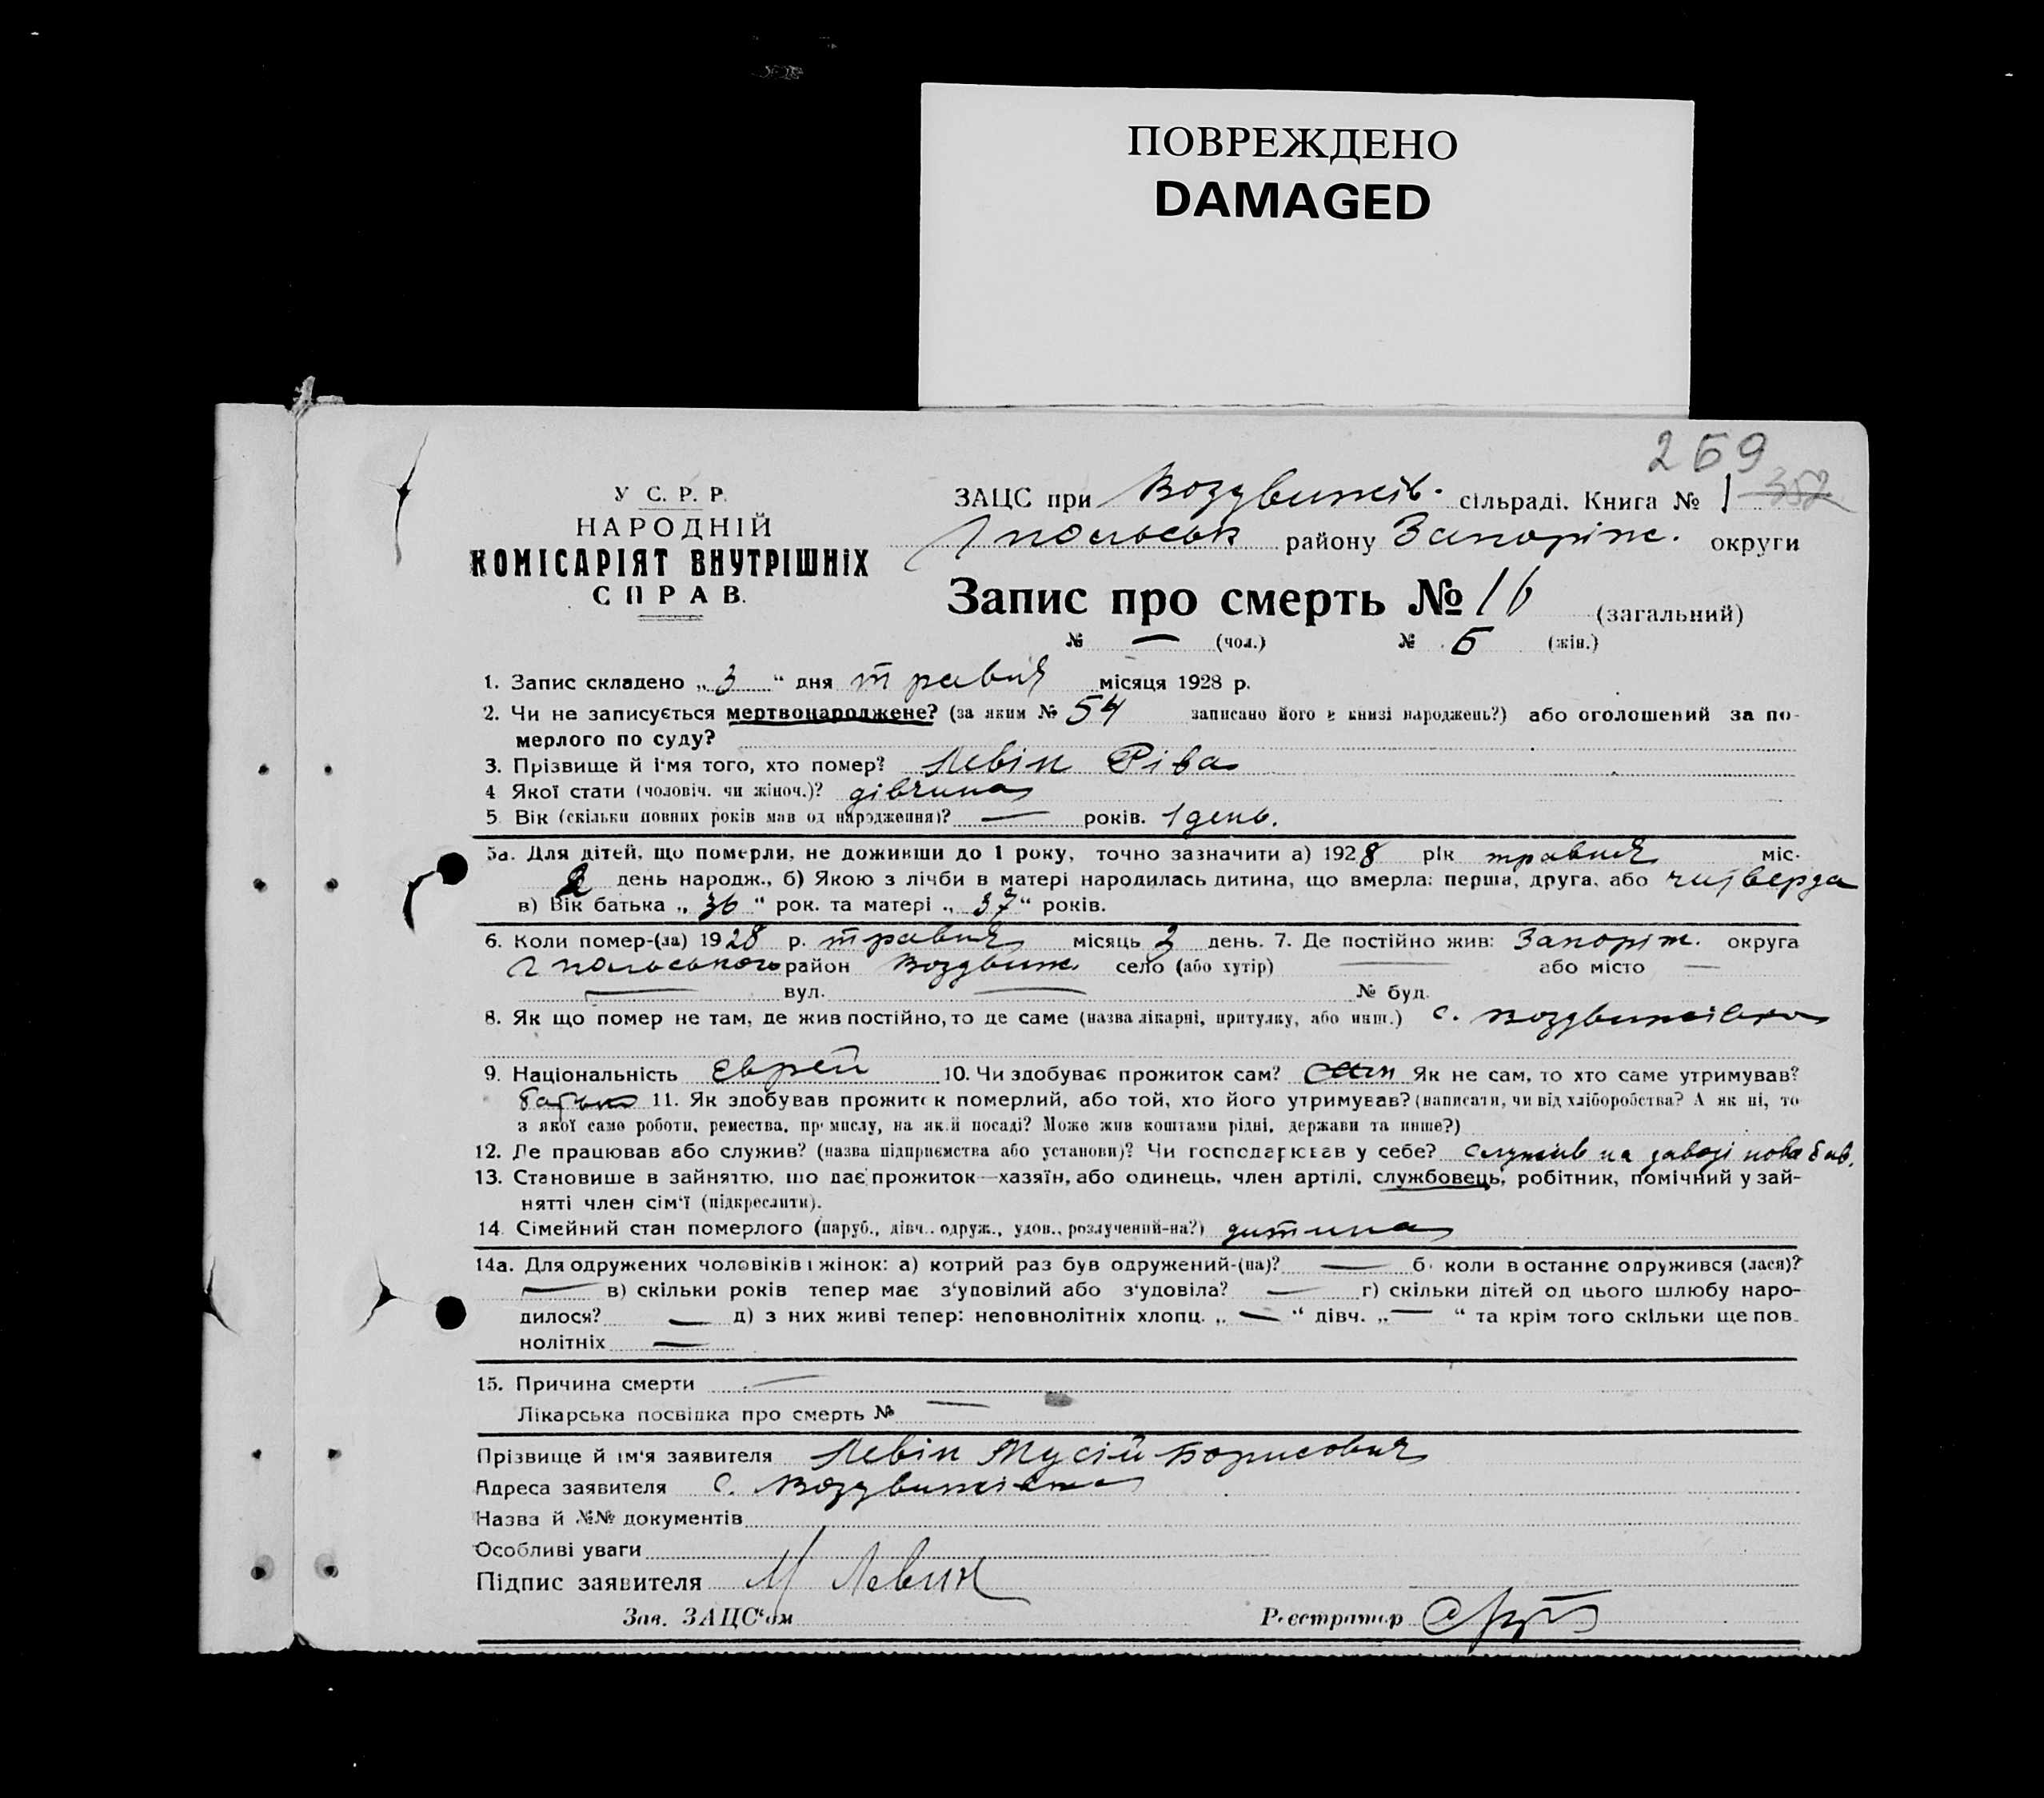 ПОВРЕЖДЕНО
DAMAGED
269
352
У С. Р. Р.
НАРОДНІЙ
КОМІСАРІЯТ ВНУТРІШНІХ
СПРАВ.
ЗАЦС при Воздвижів. сільраді. Книга № 1
Гпольськ району Запоріж. округи
Запис про смерть № 16 (загальний)
№ — (чол.) № 6 (жін.)
1. Запис складено „ 3 “ дня травня місяця 1928 р.
2. Чи не записується мертвонароджене? (за яким № 54 записано його в книзі народжень?) або оголошений за по-
мерлого по суду?
3. Прізвище й ім'я того, хто помер? Левін Ріва
4 Якої стати (чоловіч. чи жіноч.)? дівчина
5. Вік (скільки повних років мав од народження)? — років. 1 день.
5а. Для дітей, що померли, не доживши до 1 року, точно зазначити а) 1928 рік травня міс.
2 день народж., б) Якою з лічби в матері народилась дитина, що вмерла: перша, друга, або читверда
в) Вік батька „ 36 “ рок. та матері „ 37 “ років.
6. Коли помер-(ла) 1928 р. травня місяць 3 день. 7. Де постійно жив: Запоріж. округа
Гпольського район Воздвиж. село (або хутір) — або місто —
— вул. — № буд.
8. Як що помер не там, де жив постійно, то де саме (назва лікарні, притулку, або инш.) с. Воздвижівка
9. Національність Єврей 10. Чи здобуває прожиток сам? Як не сам, то хто саме утримував?
батько 11. Як здобував прожиток померлий, або той, хто його утримував? (написати, чи від хліборобства? А як ні, то
з якої само роботи, ремества, промислу, на якій посаді? Може жив коштами рідні, держави та инше?)
12. Де працював або служив? (назва підприємства або установи)? Чи господарював у себе? служив на заводі
13. Становище в зайняттю, що дає прожиток—хазяїн, або одинець, член артілі, службовець, робітник, помічний у зай-
нятті член сім'ї (підкреслити).
14. Сімейний стан померлого (паруб., дівч., одруж., удов., розлучений-на?) дитина
14а. Для одружених чоловіків і жінок: а) котрий раз був одружений-(на)? — б. коли востаннє одружився (лася)?
— в) скільки років тепер має з'удовілий або з'удовіла? — г) скільки дітей од цього шлюбу наро-
дилося? — д) з них живі тепер: неповнолітніх хлопц. „ — “ дівч. „ — “ та крім того скільки ще пов-
нолітніх —
15. Причина смерти —
Лікарська посвідка про смерть № —
Прізвище й ім'я заявителя Левін Мусій Борисович
Адреса заявителя с. Воздвижівка
Назва й №№ документів
Особливі уваги
Підпис заявителя М Левин
Зав. ЗАЦС'ом Реєстратор